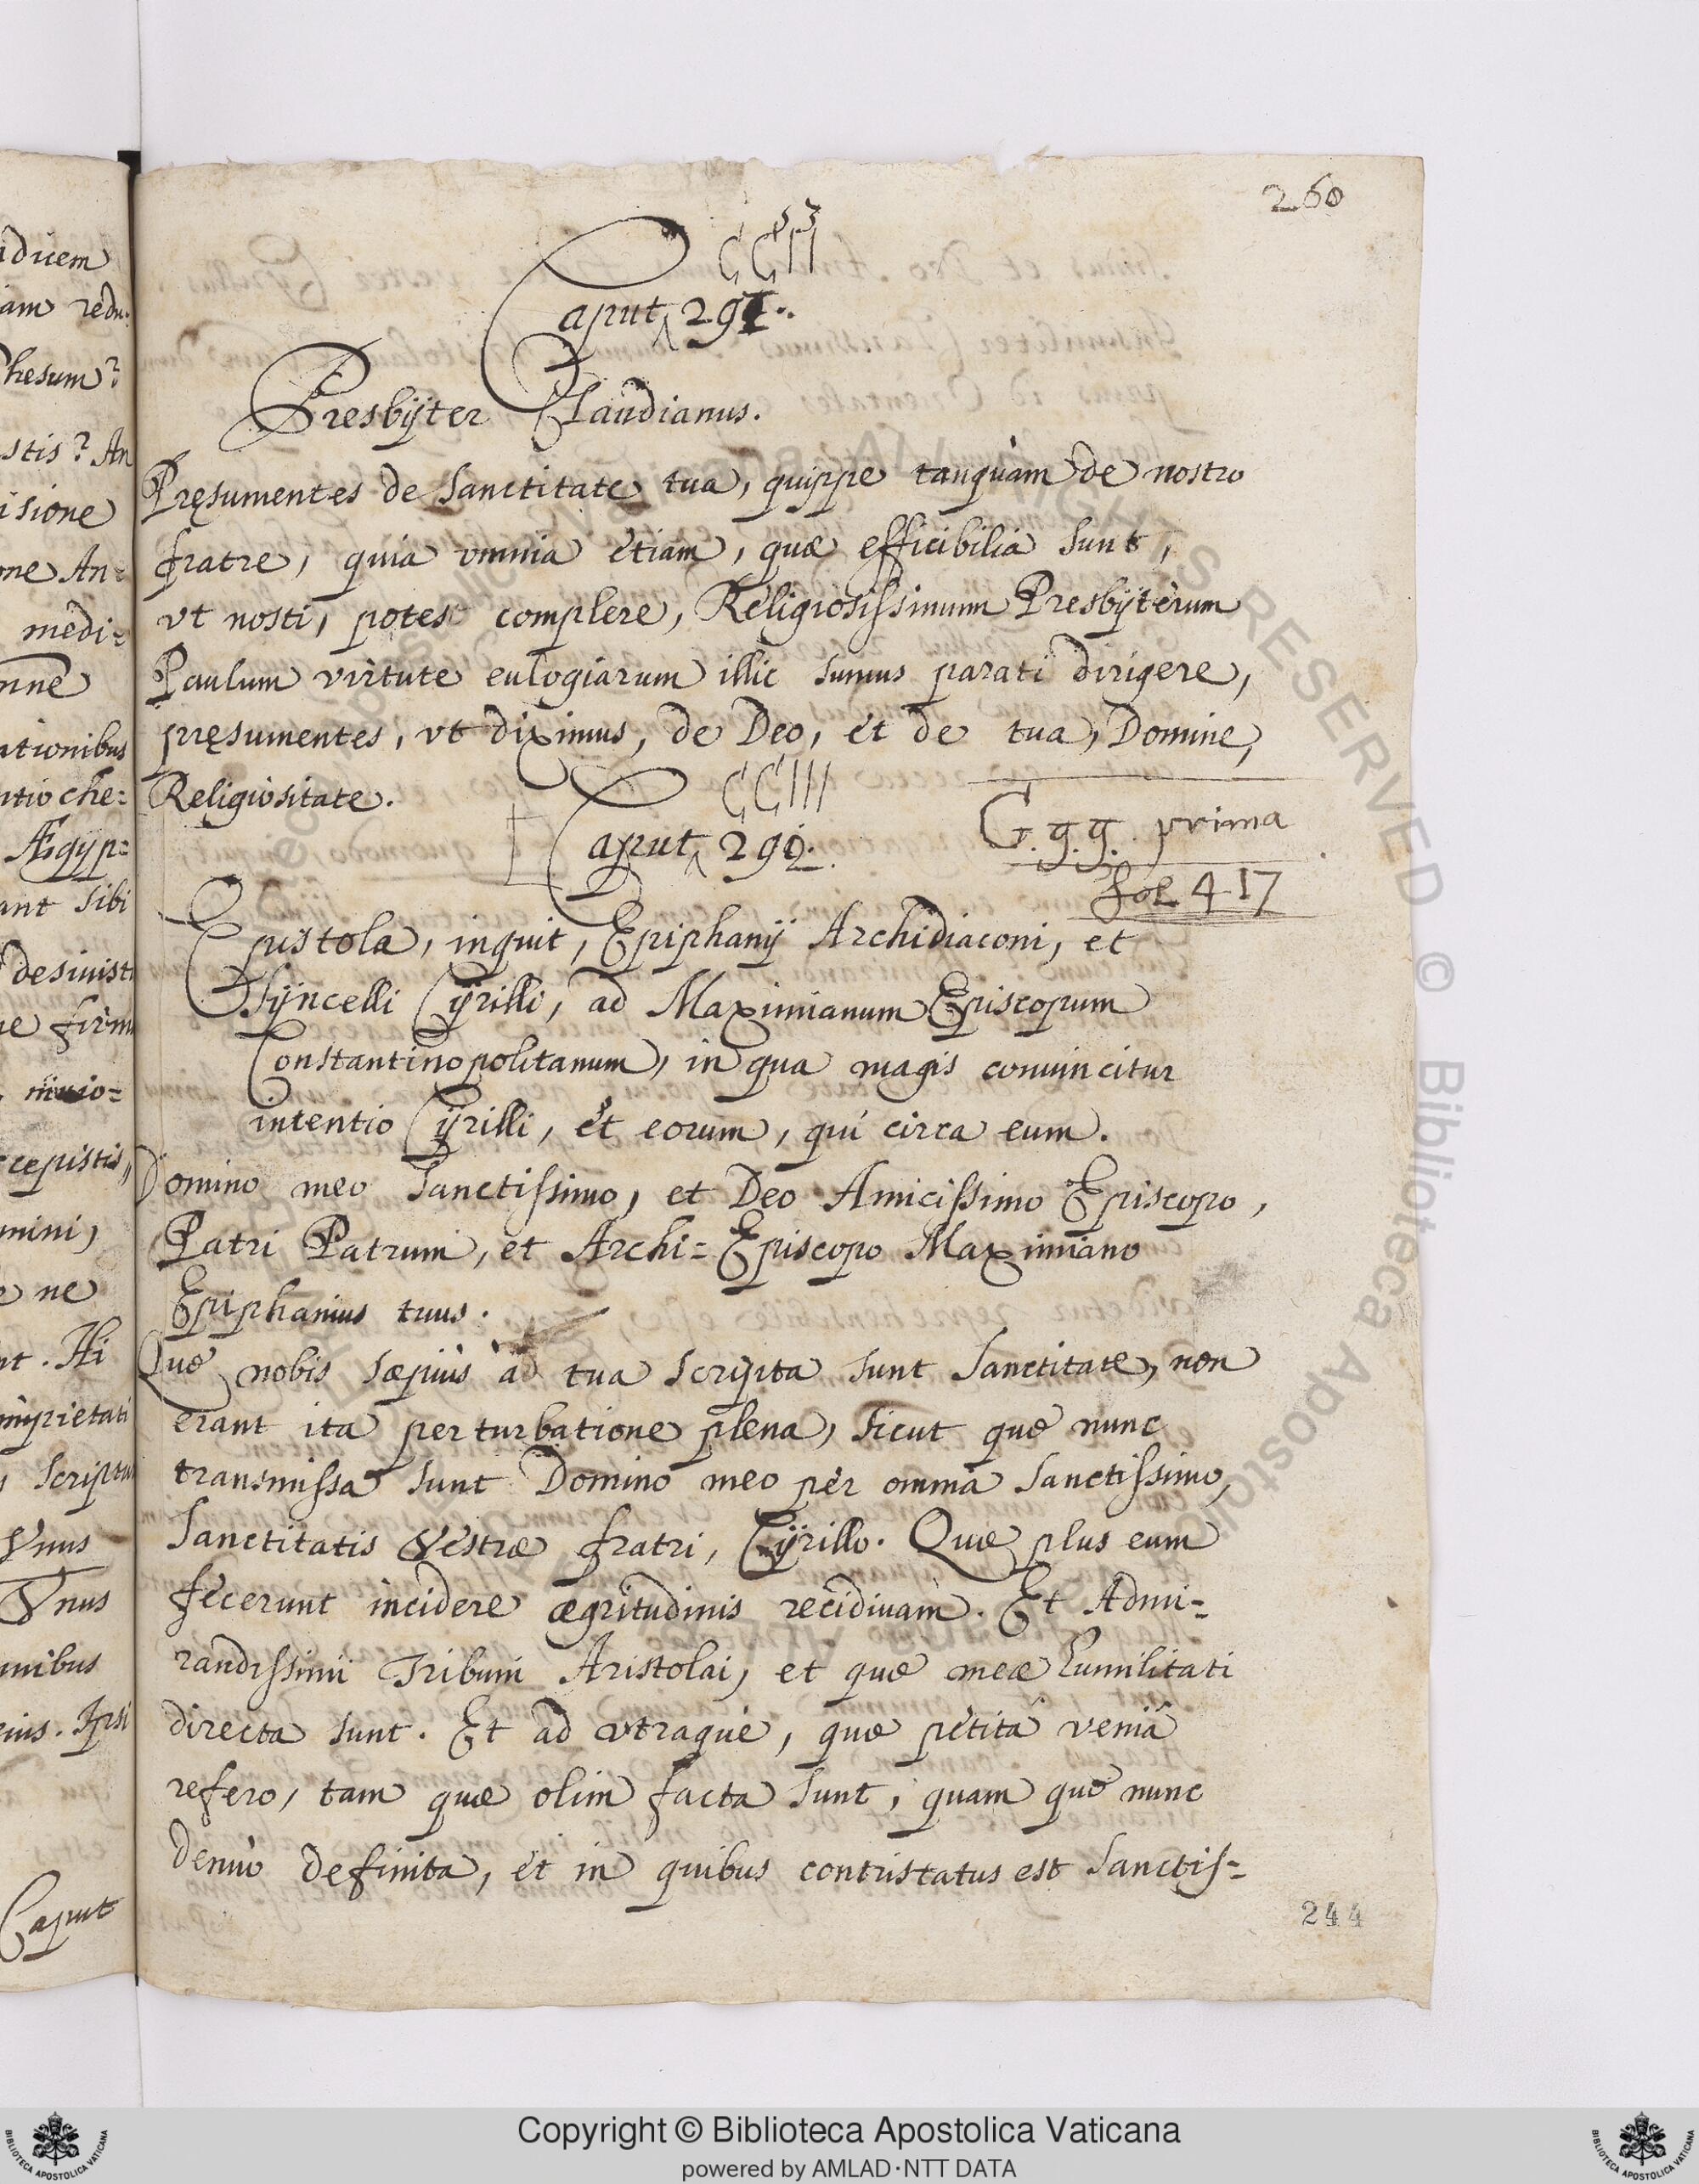 260
CCII
Caput 291.
Presbÿter Claudianus.
Pręsumentes de Sanctitate tua, quippe tanquàm de nostro
fratre, quia omnia etiam, quæ efficibilia sunt,
vt nosti, potest complere, Religiosissimum Presbÿterum
Paulum virtute eulogiarum illic sumus parati dirigere,
pręsumentes, vt diximus, de Deo, et de tua, Domine,
Religiositate.
CCIII
Caput 292.
G.g.g. prima
fol. 417
Epistola, inquit, Epiphanÿ Archidiaconi, et
Sÿncelli Cÿrilli, ad Maximianum Episcopum
Constantinopolitanum, in qua magis conuincitur
intentio Cÿrilli, et eorum, qui circa eum.
Domino meo Sanctissimo, et Deo Amicissimo Episcopo,
Patri Patrum, et Archi= Episcopo Maximiano
Epiphanius tuus.
Quæ nobis sæpiùs ad tua scripta sunt Sanctitate, non
erant ita perturbatione plena, sicut quæ nunc
transmissa sunt Domino meo per omnia Sanctissimo,
Sanctitatis Vestræ fratri, Cÿrillo. Quæ plus eum
fecerunt incidere ægritudinis recidiuam. Et Admi=
randissimi Tribuni Aristolai, et quæ meæ humilitati
directa sunt. Et ad vtraque, quæ petitâ veniâ
refero, tam quæ olim facta sunt, quam quæ nunc
denuò definita, et in quibus contristatus est Sanctis=
244
iam redu=
stis? An
isione
one An=
medi=
ationibus
Ægyp=
ant sibi
desiuisti
cepistis,
ne
nt. Hi
Vnus
Vnus
eius. Ipsi
Caput
Copyright © Biblioteca Apostolica Vaticana
powered by AMLAD·NTT DATA